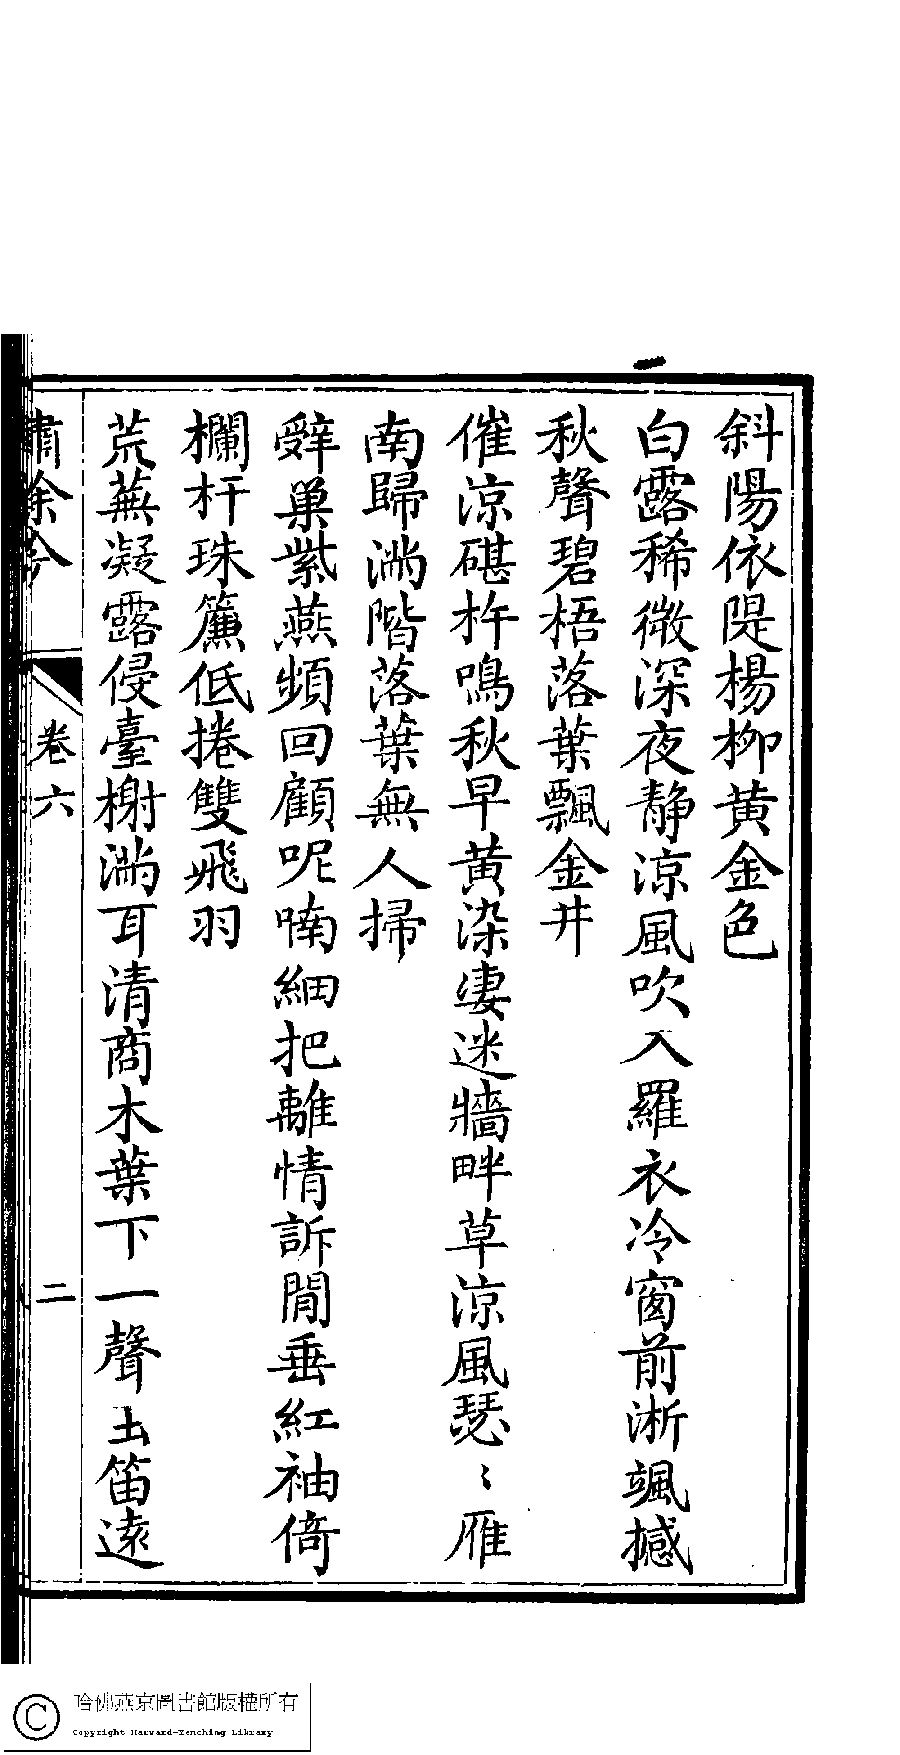 斜陽依隄楊柳黄金色
白露稀微深夜静涼風吹入羅衣冷窗前淅颯撼
秋聲碧梧落葉飄金井
催涼碪杵鳴秋早黄染凄迷牆畔草涼風瑟〻雁
南歸滿階落葉無人掃
辤巢紫燕頻回顧呢喃細把離情訴閒垂紅袖倚
欄杆珠簾低捲雙飛羽
荒蕪凝露侵臺榭滿耳清商木葉下一聲玉笛遠
繡餘吟
卷六
二
哈佛燕京圖書館版權所有
Copyright Harvard-Yenching Library